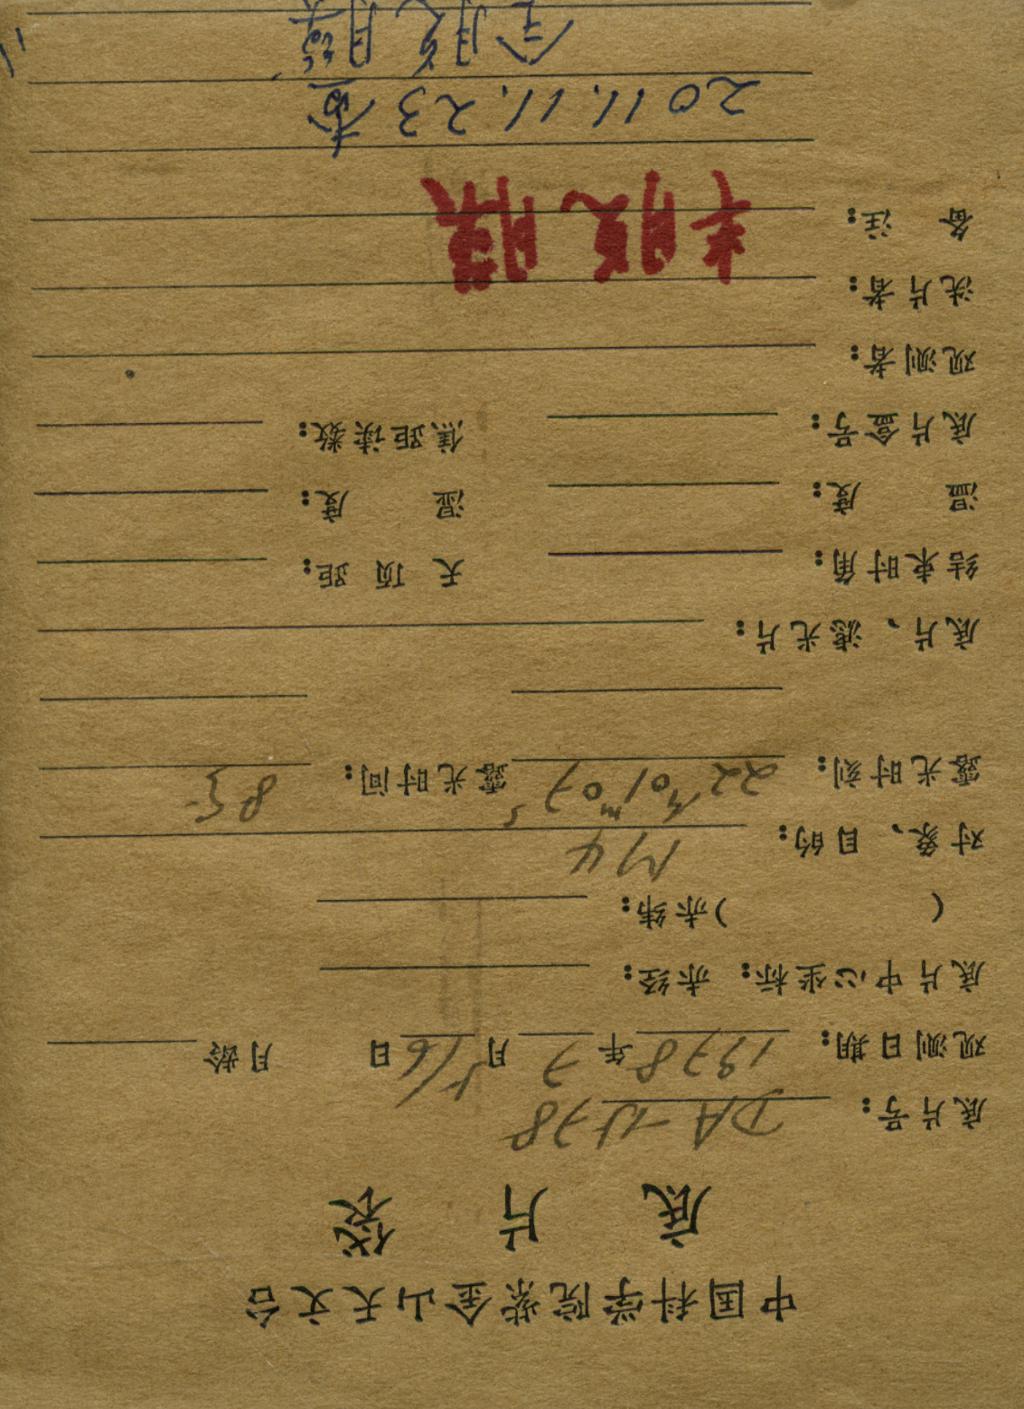 中国科学院紫金山天文台
底片袋
底片号: DA-1278
观测日期: 1978年7月16日 月龄
底片中心坐标: 赤经:
( )赤纬:
对象、目的: M4
露光时刻: 22h01m07s 露光时间: 85
底片、滤光片:
结束时角: 天顶距:
温度: 湿度:
底片盒号: 焦距读数:
观测者:
洗片者:
备注: 半脱膜
2011.11.23查
全脱膜